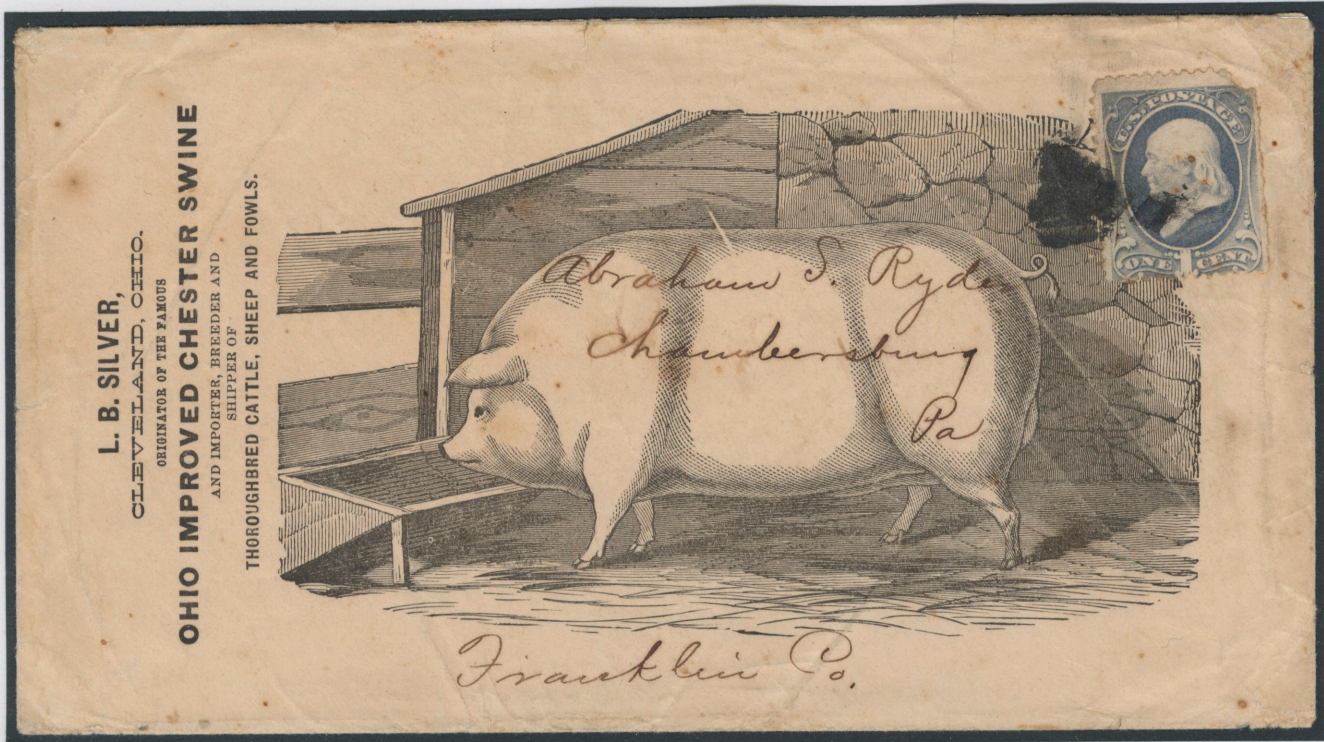 L. B. SILVER,
CLEVELAND, OHIO.
ORIGINATOR OF THE FAMOUS
OHIO IMPROVED CHESTER SWINE
AND IMPORTER, BREEDER AND
SHIPPER OF
THOROUGHBRED CATTLE, SHEEP AND FOWLS.
U.S. POSTAGE
ONE CENT
Abraham S. Ryder
Chambersburg
Pa
Franklin Co.